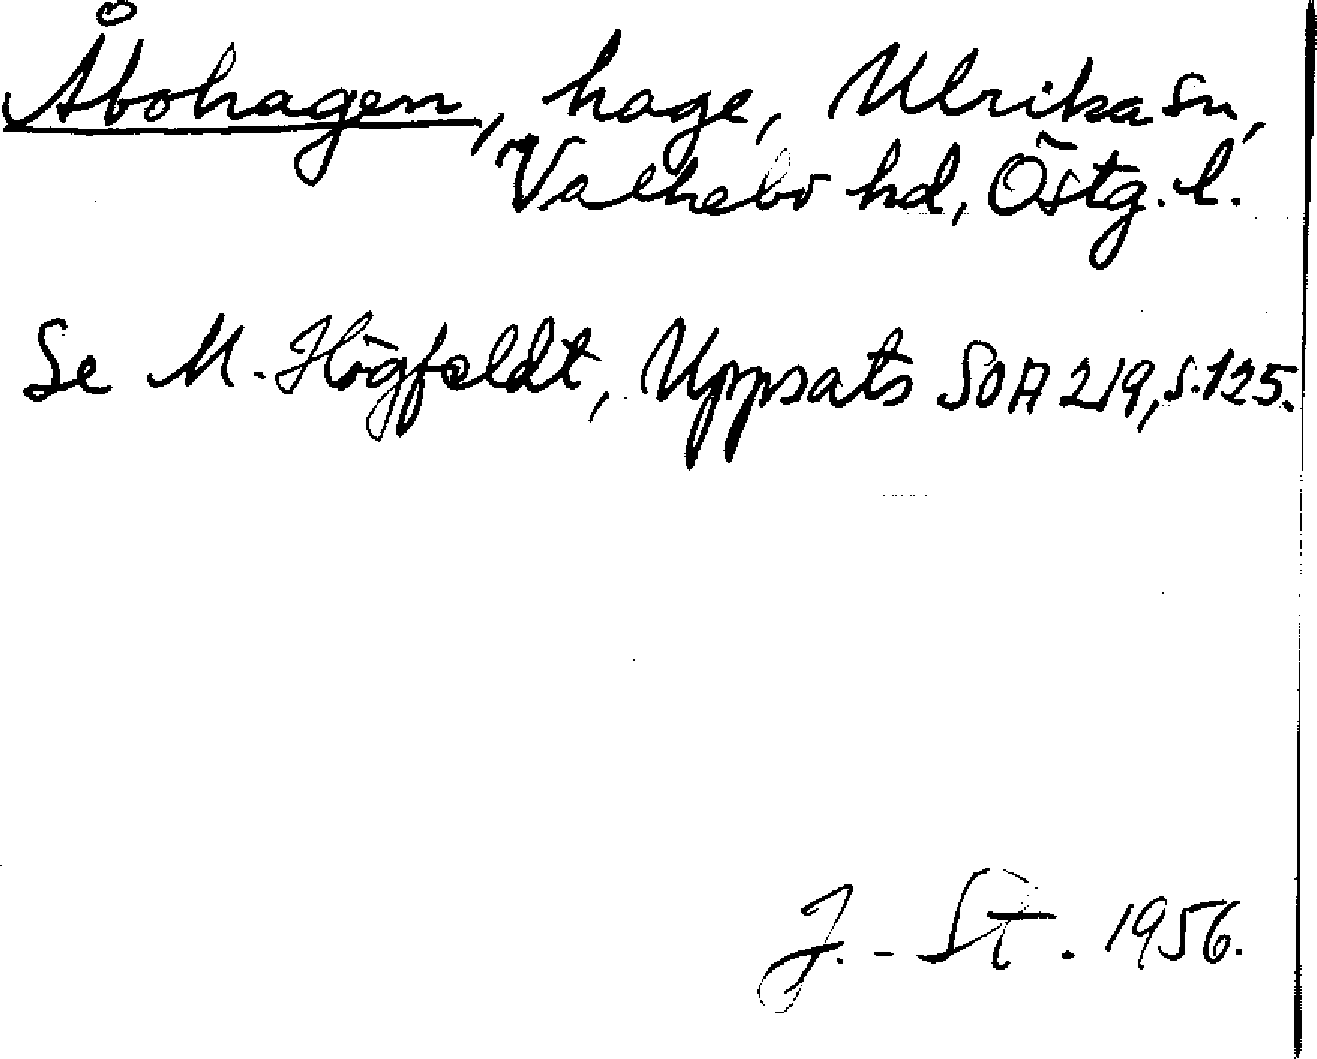 Åbohagen, hage, Ulrika sn,
Valkebo hd, Östg. l.
Se M. Högfeldt, Uppsats SOA 219, s. 125.
J. - St. 1956.